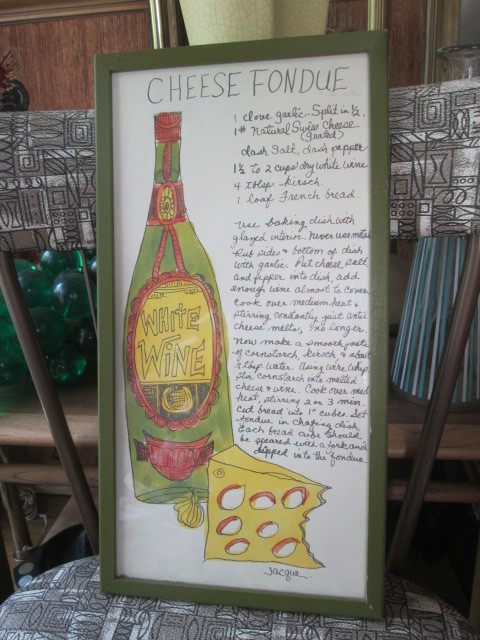 CHEESE FONDUE
1 clove garlic - Split in ½.
1# Natural Swiss Cheese
(grated)
dash Salt, dash pepper
1½ to 2 cups dry white wine
4 tblsp. kirsch
1 loaf French bread.
Use baking dish with
glazed interior. Never use metal
Rub sides + bottom of dish
with garlic. Put cheese, salt
and pepper into dish, add
enough wine almost to cover
Cook over medium heat +
stirring constantly just until
cheese melts, no longer.
Now make a smooth paste
of cornstarch, kirsch, + about
tbsp water. Using wire whip
stir cornstarch into melted
cheese + wine. Cook over med
heat, stirring 2 or 3 min.
Cut bread into 1" cubes. Set
fondue in chafing dish.
Each bread cube should
be speared with a fork and
dipped into the fondue
WHITE
WINE
Jacquie